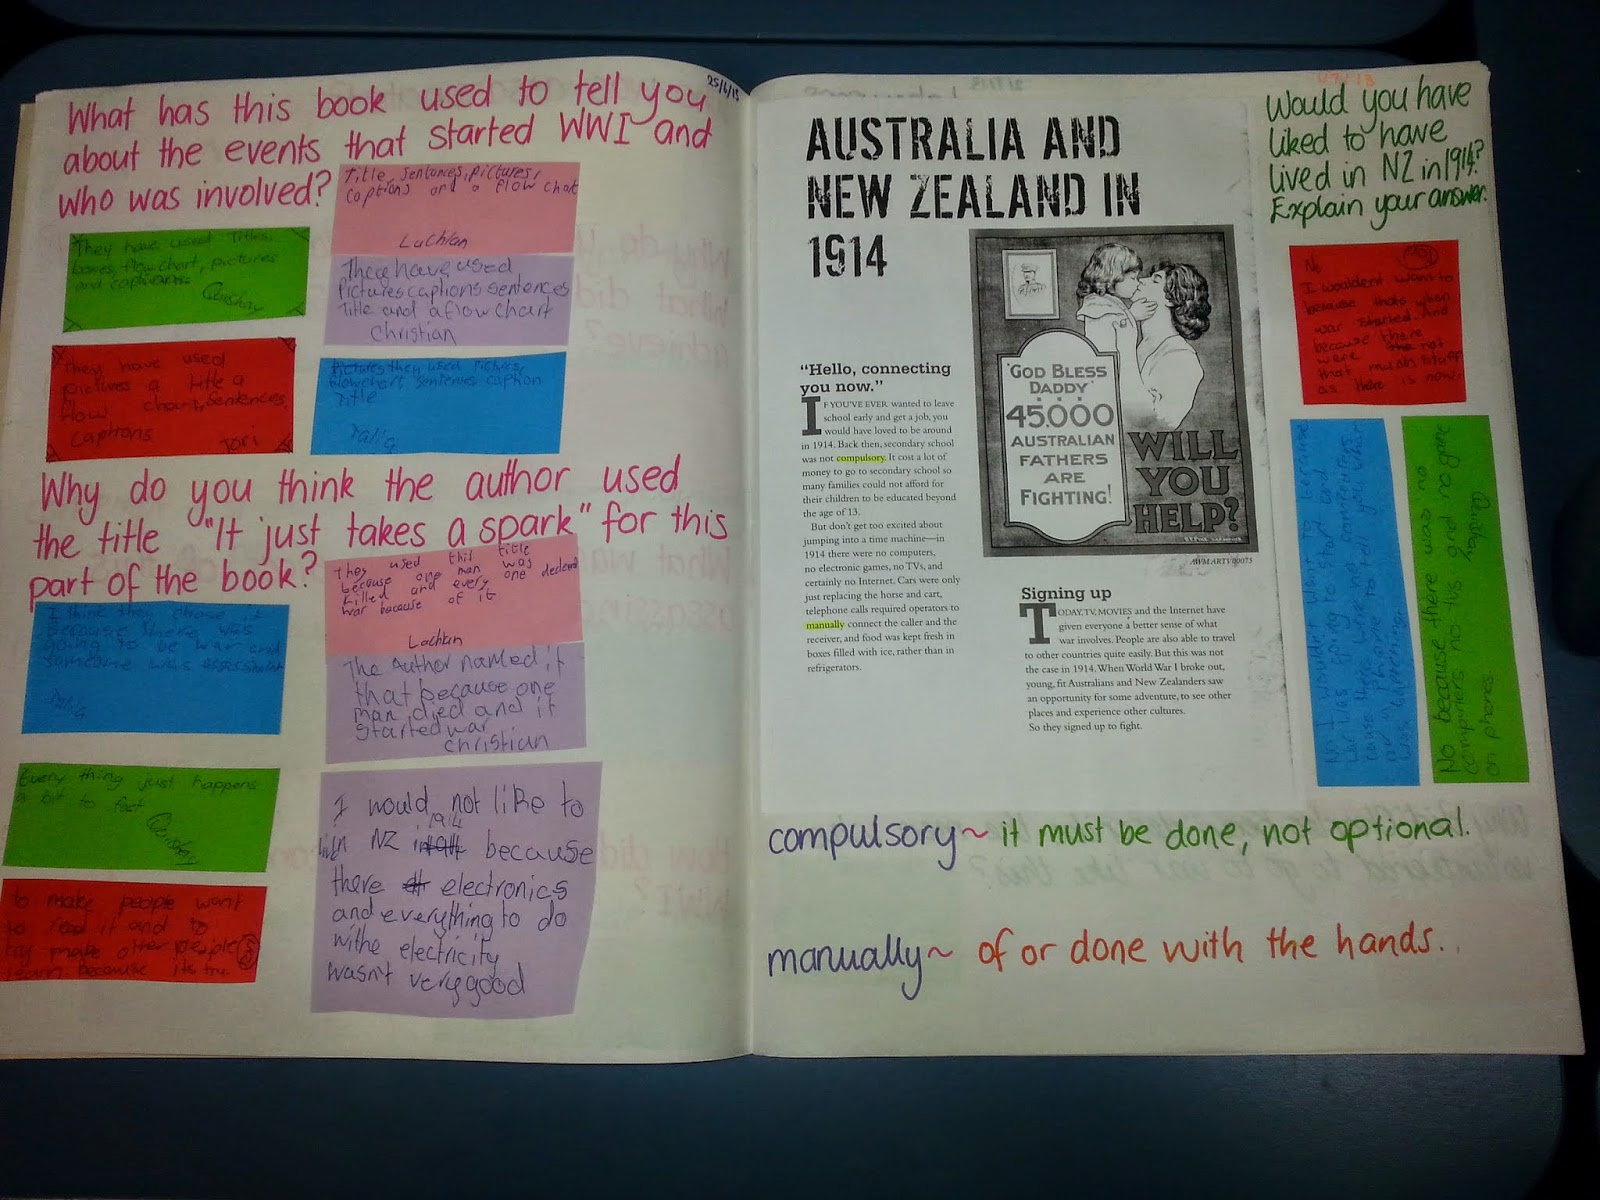 25/6/15
What has this book used to tell you
about the events that started WWI and
who was involved?
Title, sentences, pictures,
captions and a flow chart
Lachlan
They have used Titles,
boxes, flow chart, pictures
and captions
They have used
Pictures captions sentences
Title and a flow chart
Christian
They have used
pictures a title a
flow chart, sentences,
captions
Tori
Pictures they used Pictures,
flowchart sentences caption
Title
Why do you think the author used
the title "It just takes a spark" for this
part of the book?
They used this title
because one man was
killed and every one declered
war because of it
Lachlan
I think they chose it
because there was
going to be war and
someone was
The Author named it
that because one
man died and it
started war
Christian
Every thing just happens
a bit to fast
to make people want
to read it and to
make other people
learn because its true
I would not like to
live in NZ in 1914 because
there electronics
and everything to do
withe electricity
wasn't very good
AUSTRALIA AND
NEW ZEALAND IN
1914
"Hello, connecting
you now."
IF YOU'VE EVER wanted to leave
school early and get a job, you
would have loved to be around
in 1914. Back then, secondary school
was not compulsory. It cost a lot of
money to go to secondary school so
many families could not afford for
their children to be educated beyond
the age of 13.
But don't get too excited about
jumping into a time machine—in
1914 there were no computers,
no electronic games, no TVs, and
certainly no Internet. Cars were only
just replacing the horse and cart,
telephone calls required operators to
manually connect the caller and the
receiver, and food was kept fresh in
boxes filled with ice, rather than in
refrigerators.
'GOD BLESS
DADDY'
45000
AUSTRALIAN
FATHERS
ARE
FIGHTING!
WILL
YOU
HELP?
AWM ARTV00075
Signing up
TODAY, TV, MOVIES and the Internet have
given everyone a better sense of what
war involves. People are also able to travel
to other countries quite easily. But this was not
the case in 1914. When World War I broke out,
young, fit Australians and New Zealanders saw
an opportunity for some adventure, to see other
places and experience other cultures.
So they signed up to fight.
Would you have
liked to have
lived in NZ in 1914?
Explain your answer.
No
I wouldent want to
because thats when
war started. And
because there
were not
that much stuff
as there is now.
No I wouldn't want to because
war was going to start and
there were not computers
or a Phone to tell you what
was happening.
No because there was no
computers no tvs and no game
on phones.
compulsory ~ it must be done, not optional.
manually ~ of or done with the hands.